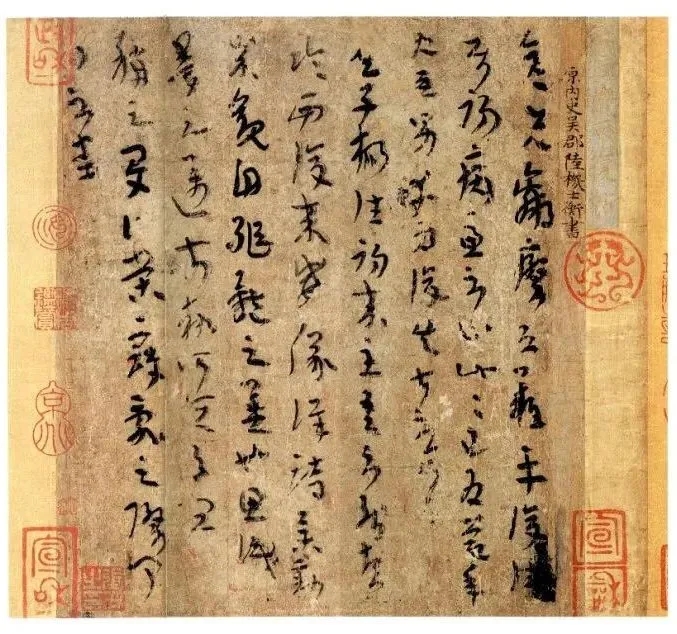 原內史吳郡陸機士衡書
彦先羸瘵恐難平復往
屬初病慮不止此此已為慶承
使唯男幸為復失前憂耳
吳子楊往初來主吾不能盡
臨西復來威儀詳跱舉動
成觀自軀體之美也思識
量之邁前執所恒有宜
稱之夏伯榮寇亂之際聞
問不悉
宣和